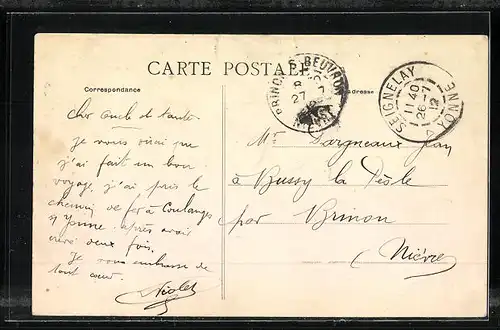 CARTE POSTALE
Correspondance
Adresse
BRINON-S-BEUVRON
8
27 - 7
12
NIÈVRE
SEIGNELAY
11 40
26 - 7
12
YONNE
Cher oncle et tante
Je vous dirai que
j'ai fait un bon
voyage j'ai pris le
chemin de fer à Coulanges
s/ Yonne après avoir
crevé deux fois.
Je vous embrasse de
tout cœur.
Mr Dargneaux Jean
à Bussy la Pesle
par Brinon
(Nièvre)